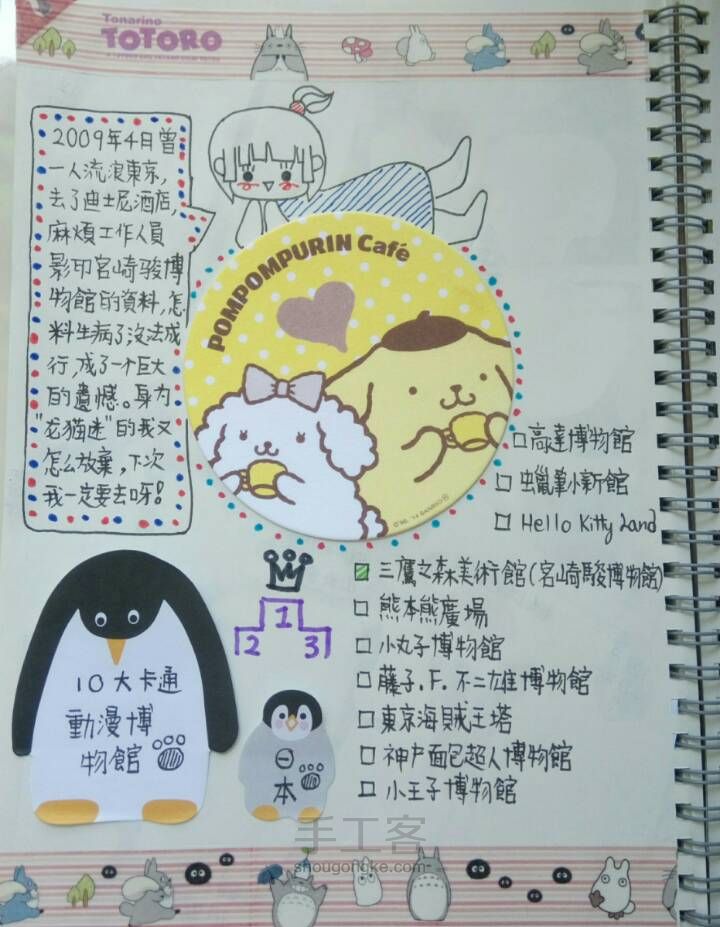 Tonarino
TOTORO
2009年4月曾
一人流浪東京,
去了迪士尼酒店,
麻煩工作人員
影印宮崎骏博
物館的資料,怎
料生病了沒法成
行,成了一个巨大
的遺憾。身为
"龙猫迷"的我又
怎么放棄,下次
我一定要去呀!
POMPOMPURIN Café
□高達博物館
□蠟筆小新館
□Hello Kitty Land
三鷹之森美術館(宮崎駿博物館)
□熊本熊廣場
□小丸子博物館
□藤子.F.不二雄博物館
□東京海賊王塔
□神戸面包超人博物館
□小王子博物館
1
2 3
10大卡通
動漫博
物館
日
本
手工客
shougongke.com